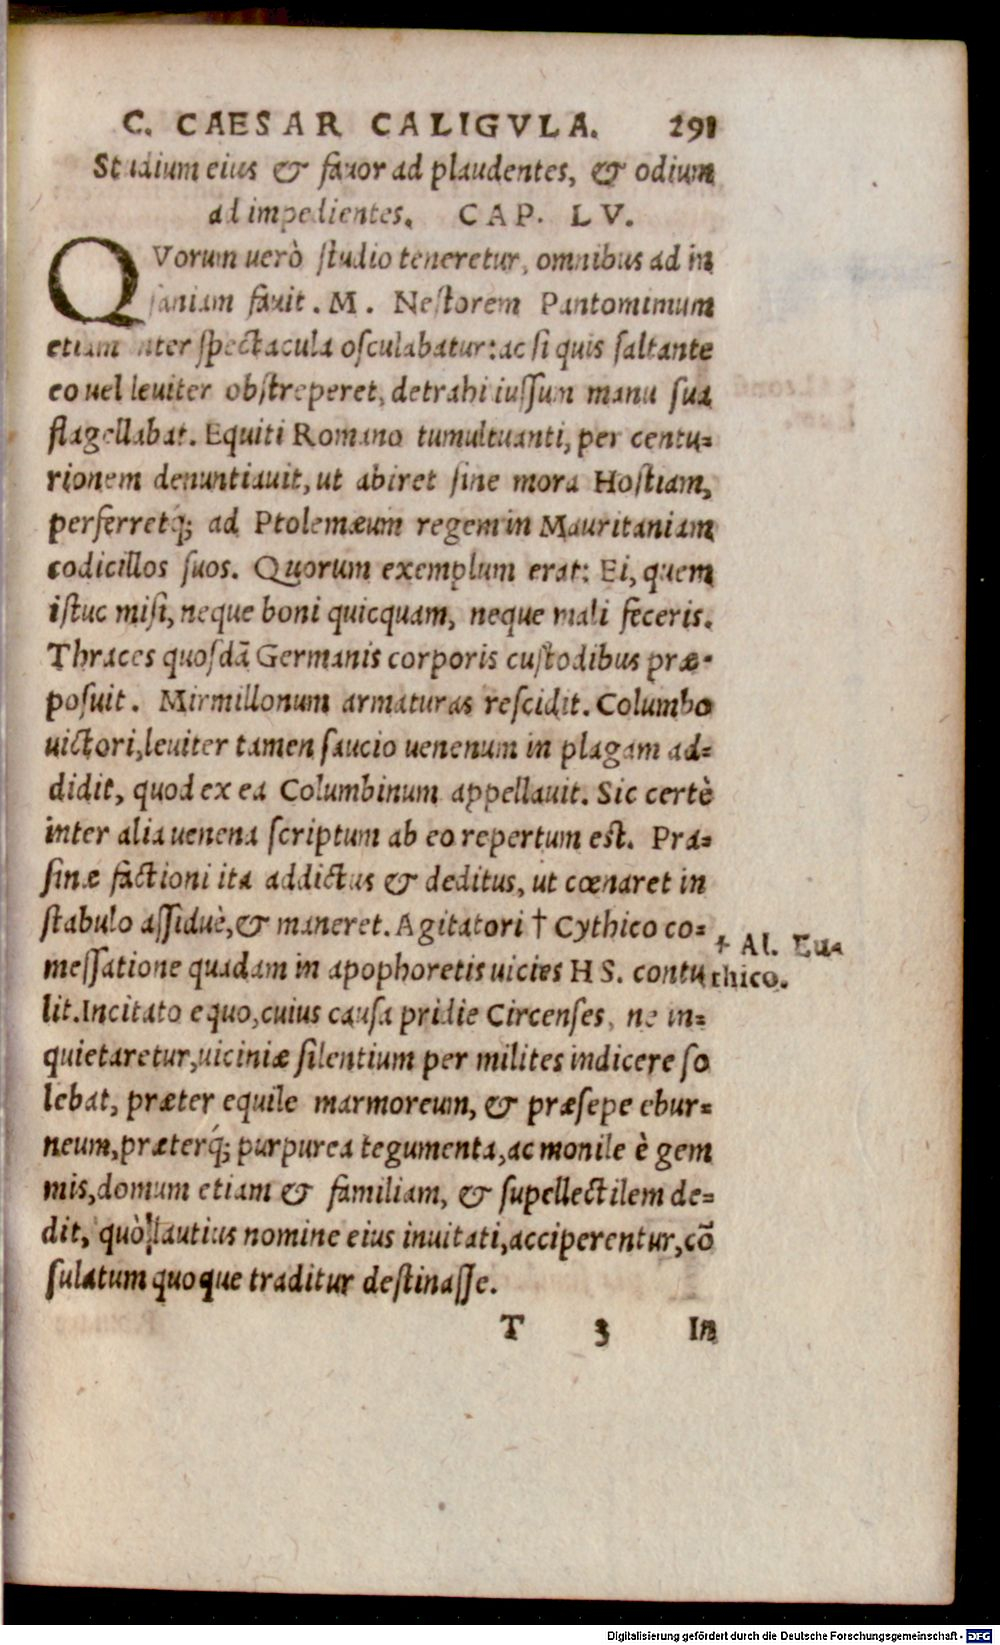 C. CAESAR CALIGVLA. 291
Studium eius & fauor ad plaudentes, & odium
ad impedientes. CAP. LV.
QVorum uerò studio teneretur, omnibus ad in
saniam fauit. M. Nestorem Pantomimum
etiam inter spectacula osculabatur: ac si quis saltante
eo uel leuiter obstreperet, detrahi iussum manu sua
flagellabat. Equiti Romano tumultuanti, per centu-
rionem denuntiauit, ut abiret sine mora Hostiam,
perferretq́; ad Ptolemæum regem in Mauritaniam
codicillos suos. Quorum exemplum erat: Ei, quem
istuc misi, neque boni quicquam, neque mali feceris.
Thraces quosdā Germanis corporis custodibus præ-
posuit. Mirmillonum armaturas rescidit. Columbo
uictori, leuiter tamen saucio uenenum in plagam ad-
didit, quod ex ea Columbinum appellauit. Sic certè
inter alia uenena scriptum ab eo repertum est. Pra-
sinæ factioni ita addictus & deditus, ut cœnaret in
stabulo assiduè, & maneret. Agitatori † Cythico co-
messatione quadam in apophoretis uicies HS. contu
lit. Incitato equo, cuius causa pridie Circenses, ne in-
quietaretur, uiciniæ silentium per milites indicere so
lebat, præter equile marmoreum, & præsepe ebur-
neum, præterq́; purpurea tegumenta, ac monile è gem
mis, domum etiam & familiam, & supellectilem de-
dit, quò lautius nomine eius inuitati, acciperentur, cō
sulatum quoque traditur destinasse.
† Al. Eu-
thico.
T 3 In
Digitalisierung gefördert durch die Deutsche Forschungsgemeinschaft - DFG